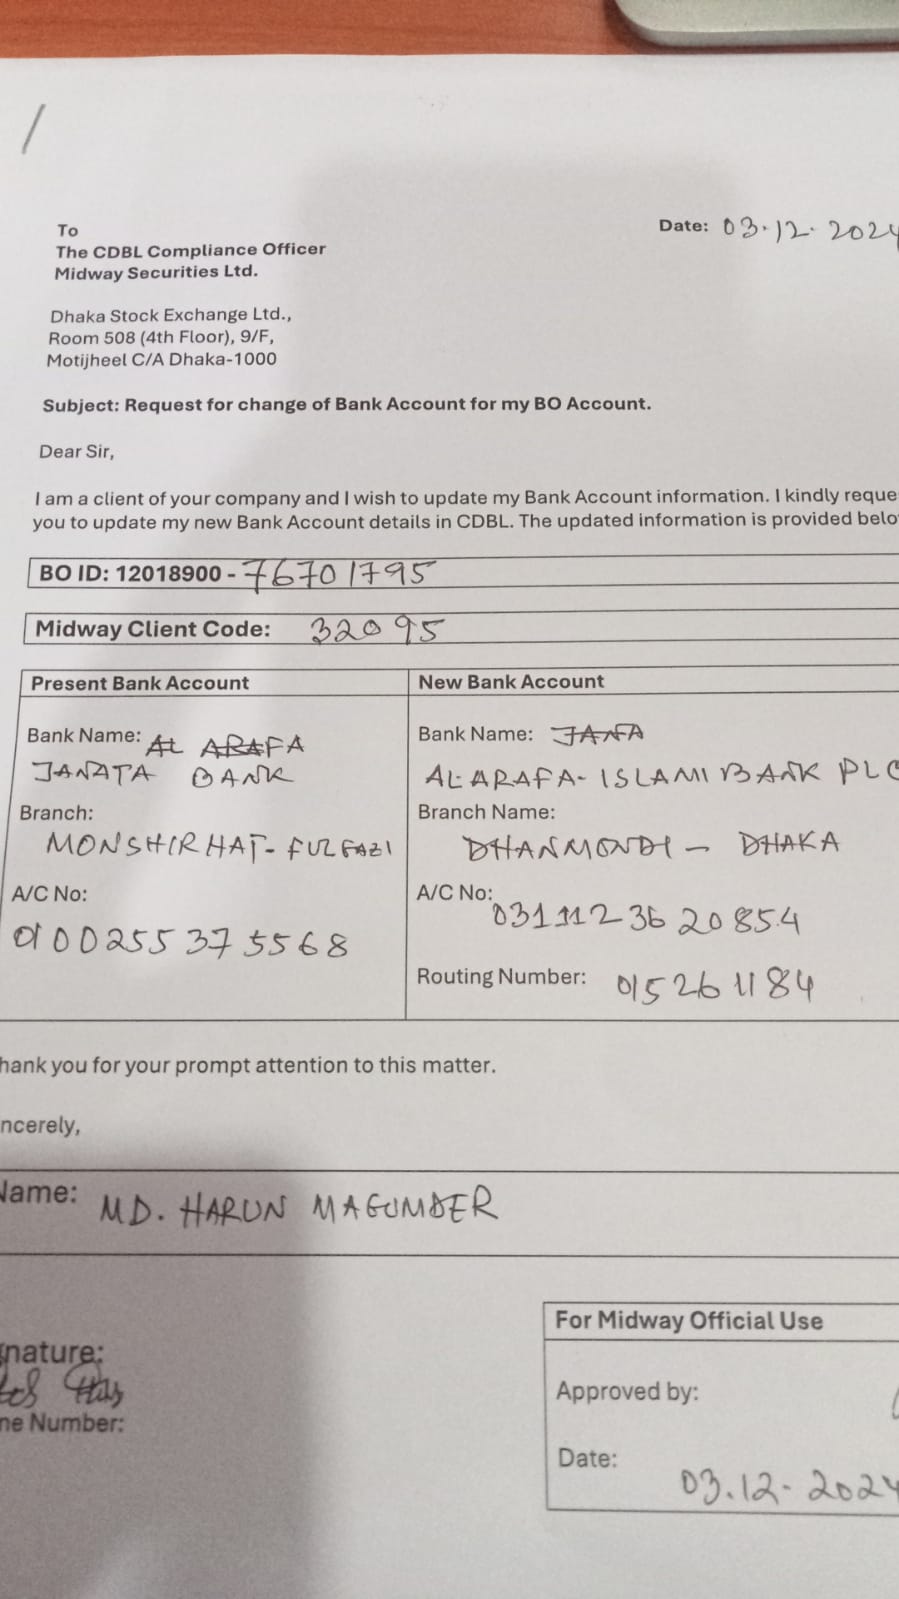 To
Date: 03.12.2024
The CDBL Compliance Officer
Midway Securities Ltd.
Dhaka Stock Exchange Ltd.,
Room 508 (4th Floor), 9/F,
Motijheel C/A Dhaka-1000
Subject: Request for change of Bank Account for my BO Account.
Dear Sir,
I am a client of your company and I wish to update my Bank Account information. I kindly reque
you to update my new Bank Account details in CDBL. The updated information is provided belo
BO ID: 12018900 - 76701795
Midway Client Code: 32095
Present Bank Account
Bank Name: AL ARAFA
JANATA BANK
Branch:
MONSHIRHAT - FULGAZI
A/C No:
0100255375568
New Bank Account
Bank Name: JANA
AL-ARAFA-ISLAMI BANK PLC
Branch Name:
DHANMONDI - DHAKA
A/C No:
0311123620854
Routing Number: 015261184
hank you for your prompt attention to this matter.
ncerely,
Name: MD. HARUN MAGUMDER
gnature:
ne Number:
For Midway Official Use
Approved by:
Date:
03.12-2024